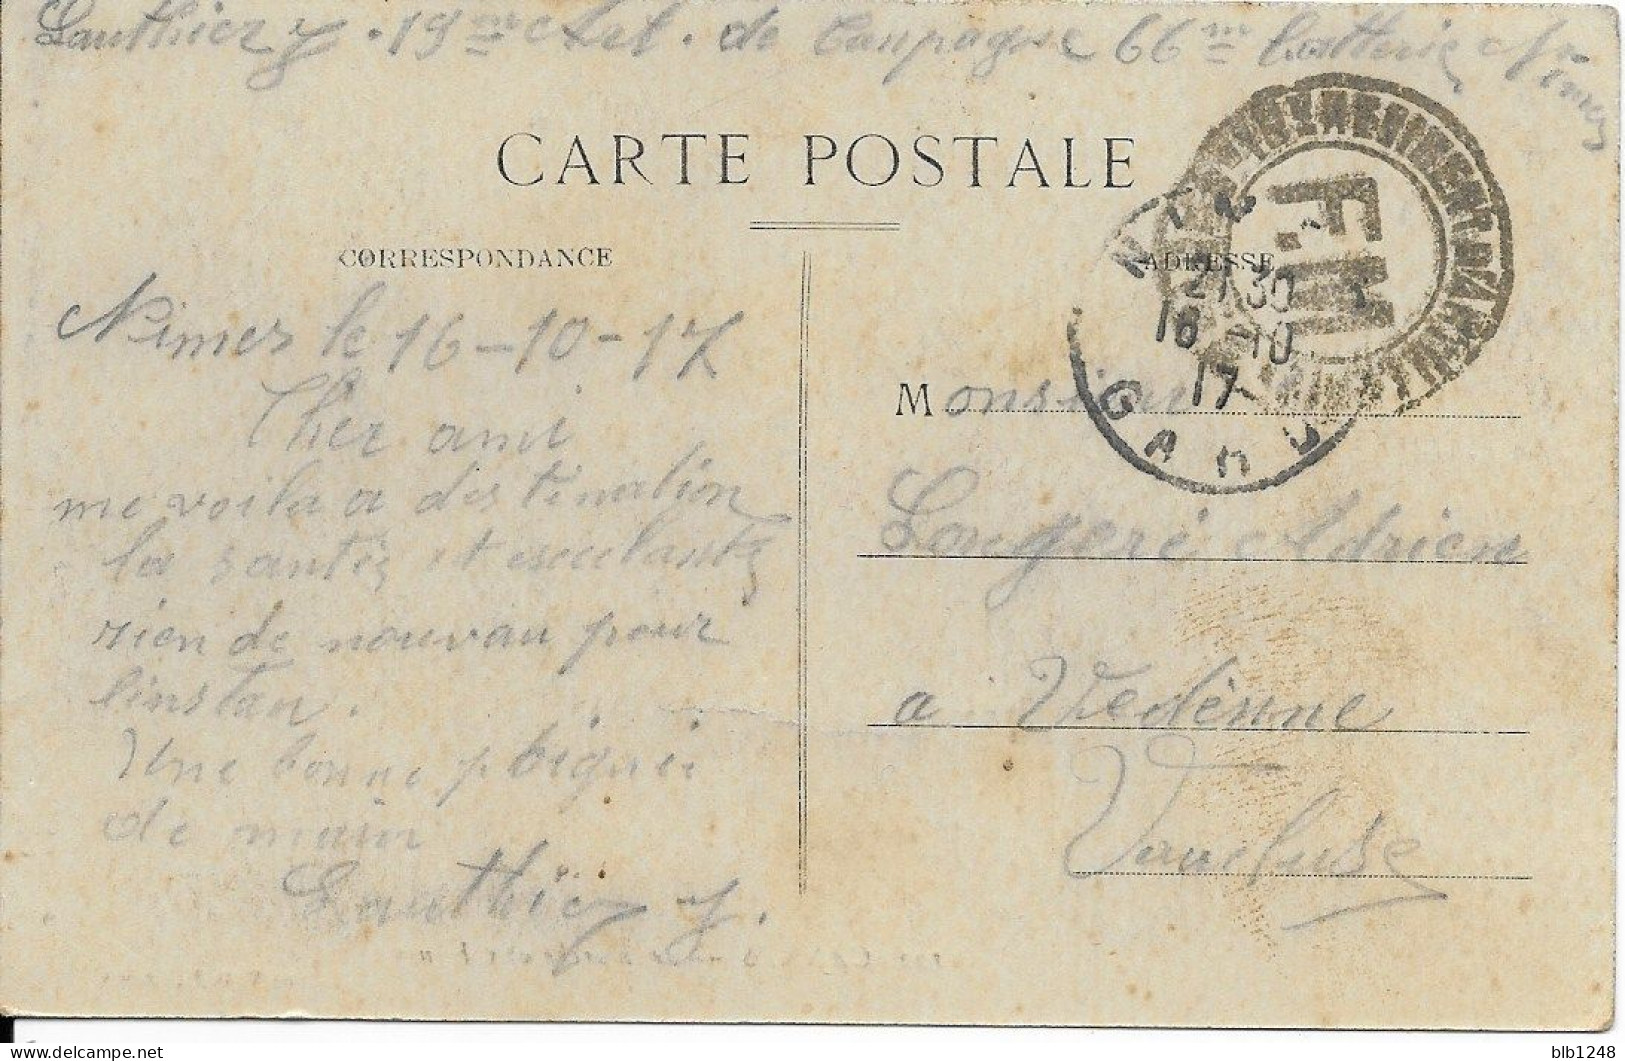 Gauthier J. 19me Art. de Campagne 66me batterie Nimes
CARTE POSTALE
CORRESPONDANCE
ADRESSE
F.M
21 30
16 -10
17
GARD
Nimes le 16-10-17
Cher ami
me voila a destination
la santé et
rien de nouvau pour
linstan.
Une bonne poignée
de main
Gauthier J.
Monsieur
Adrien
a Vedènne
Vaucluse
blb1248
delcampe.net